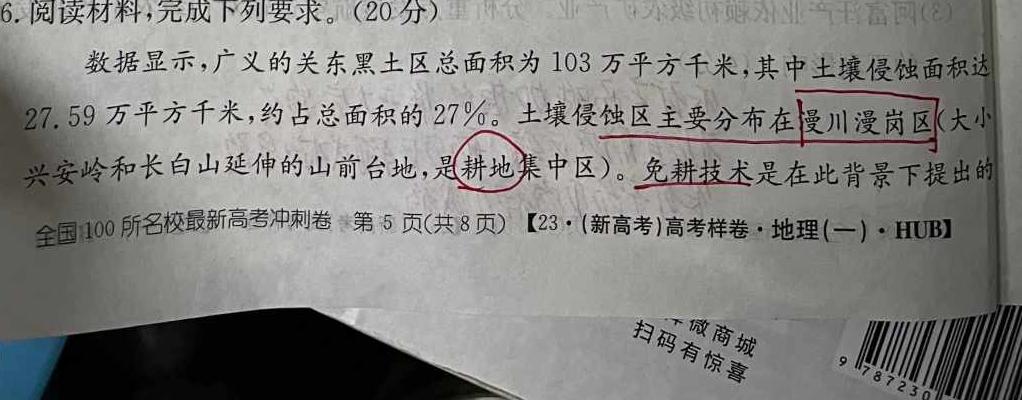 6.阅读材料,完成下列要求。(20分)
数据显示,广义的关东黑土区总面积为103万平方千米,其中土壤侵蚀面积达
27.59万平方千米,约占总面积的27%。土壤侵蚀区主要分布在漫川漫岗区(大小
兴安岭和长白山延伸的山前台地,是耕地集中区)。免耕技术是在此背景下提出的
全国100所名校最新高考冲刺卷 第5页(共8页)【23·(新高考)高考样卷·地理(一)·HUB】
微商城
扫码有惊喜
9 787230